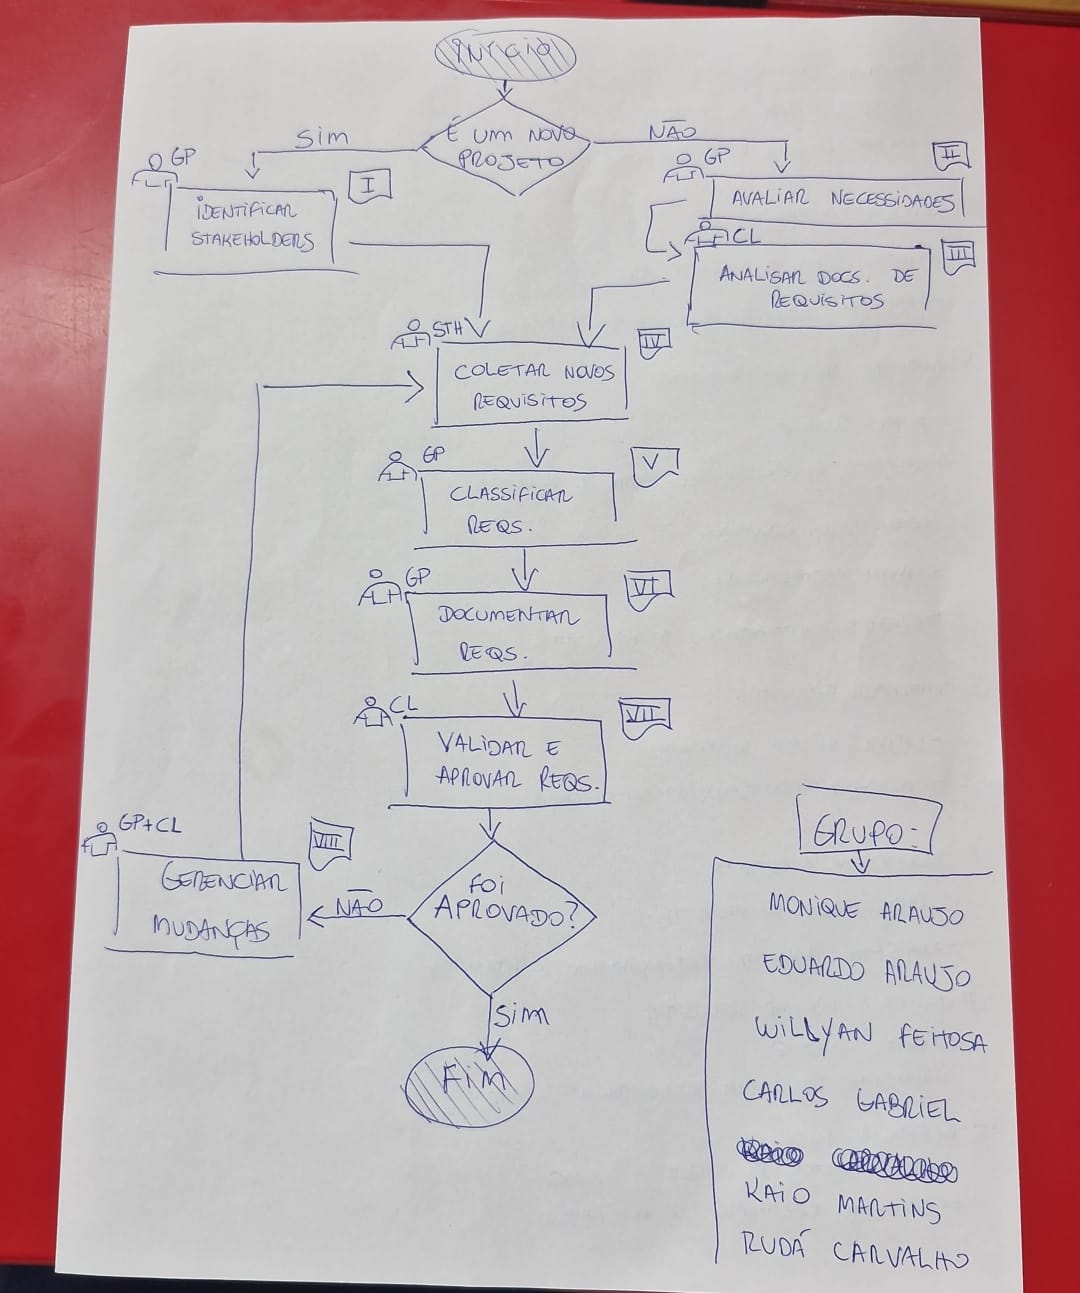 INICIO
É UM NOVO
PROJETO
Sim
NÃO
GP
I
IDENTIFICAR
STAKEHOLDERS
GP
II
AVALIAR NECESSIDADES
CL
III
ANALISAR DOCS. DE
REQUISITOS
STH
IV
COLETAR NOVOS
REQUISITOS
GP
V
CLASSIFICAR
REQS.
GP
VI
DOCUMENTAR
REQS.
CL
VII
VALIDAR E
APROVAR REQS.
GP+CL
VIII
GERENCIAR
MUDANÇAS
NÃO
FOI
APROVADO?
Sim
FIM
GRUPO:
MONIQUE ARAUJO
EDUARDO ARAUJO
WILLYAN FEITOSA
CARLOS GABRIEL
KAIO MARTINS
RUDÁ CARVALHO